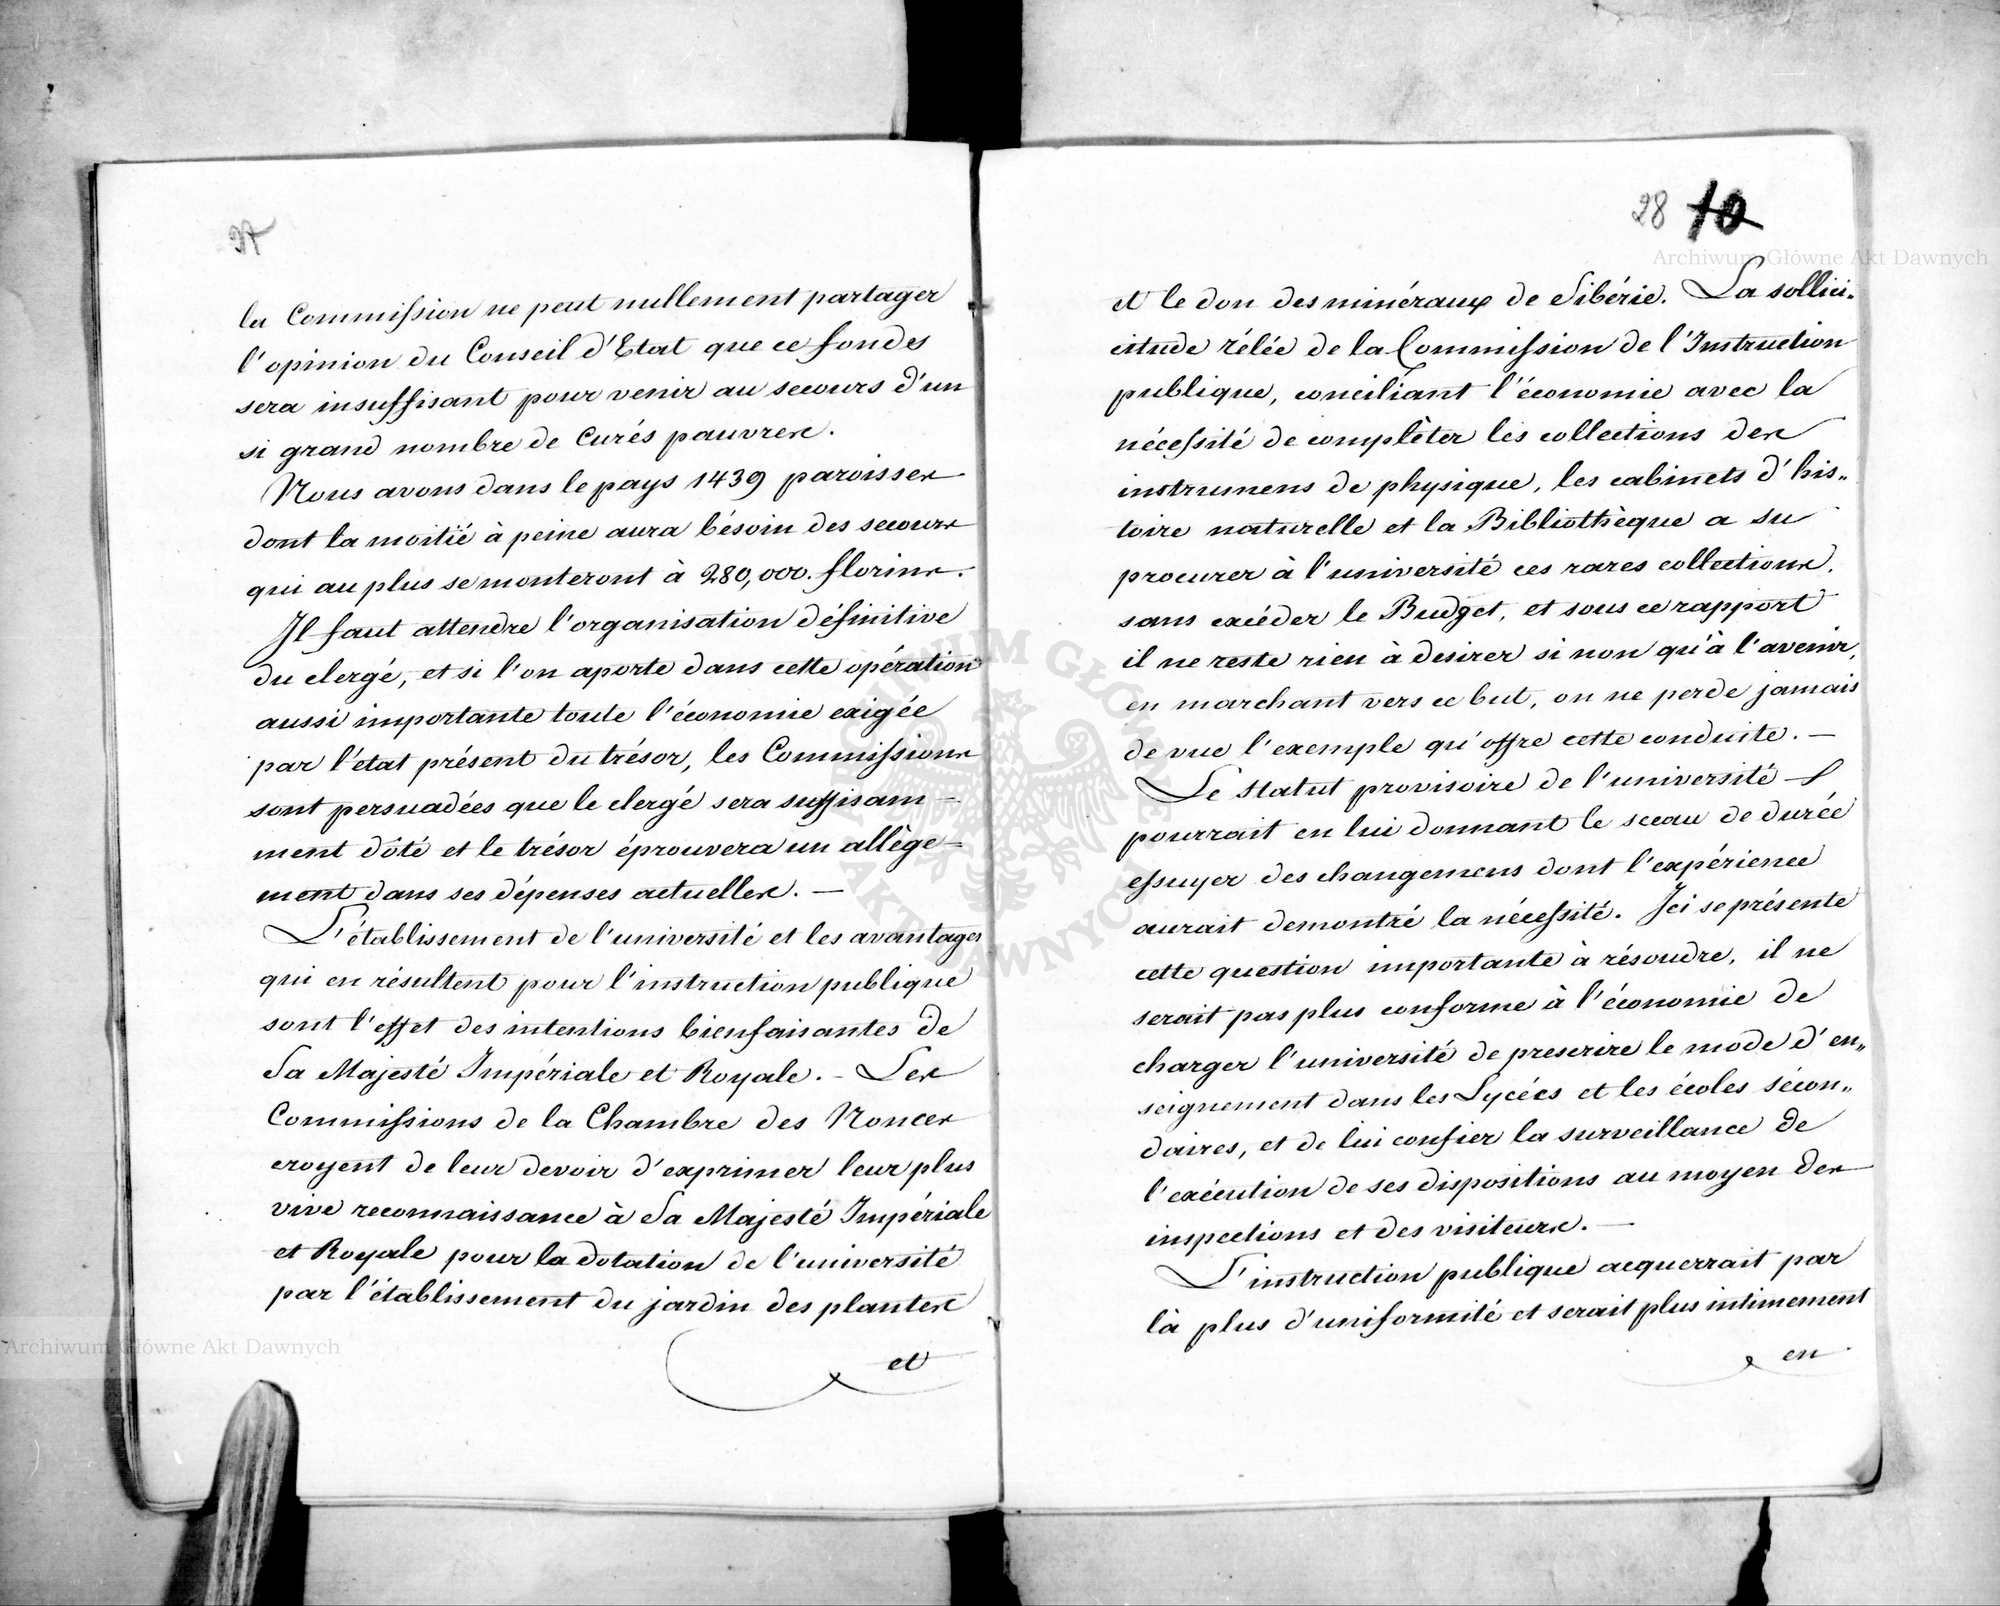 la Commission ne peut nullement partager
l'opinion du Conseil d'Etat que ce fonds
sera insuffisant pour venir au secours d'un
si grand nombre de Curés pauvres.
Nous avons dans le pays 1439 paroisses
dont la moitié à peine aura bésoin des secours
qui au plus se monteront à 280,000. florins.
Il faut attendre l'organisation définitive
du clergé, et si l'on aporte dans cette opération
aussi importante toute l'économie exigée
par l'état présent du trésor, les Commissions
sont persuadées que le clergé sera suffisam-
ment dôté et le trésor éprouvera un allège-
ment dans ses dépenses actuelles. —
L'établissement de l'université et les avantages
qui en résultent pour l'instruction publique
sont l'effet des intentions bienfaisantes de
Sa Majesté Impériale et Royale. - Les
Commissions de la Chambre des Nonces
croyent de leur devoir d'exprimer leur plus
vive reconnaissance à Sa Majesté Impériale
et Royale pour la dotation de l'université
par l'établissement du jardin des plantes
et
28 10
et le don des minéraux de Sibérie. La sollici-
citude zélée de la Commission de l'Instruction
publique, conciliant l'économie avec la
nécessité de complèter les collections des
instrumens de physique, les cabinets d'his-
toire naturelle et la Bibliothèque a su
procurer à l'université ces rares collections,
sans excéder le Budget, et sous ce rapport
il ne reste rien à desirer si non qu'à l'avenir,
en marchant vers ce but, on ne perde jamais
de vue l'exemple qu'offre cette conduite. —
Le statut provisoire de l'université
pourrait en lui donnant le sceau de durée
essuyer des changemens dont l'expérience
aurait demontré la nécessité. Ici se présente
cette question importante à résoudre, il ne
serait pas plus conforme à l'économie de
charger l'université de prescrire le mode d'en-
seignement dans les Lycées et les écoles sécon-
daires, et de lui confier la surveillance de
l'exécution de ses dispositions au moyen des
inspections et des visiteurs. —
L'instruction publique acquerrait par
là plus d'uniformité et serait plus intimement
en
Archiwum Główne Akt Dawnych
Archiwum Główne Akt Dawnych
ARCHIWUM GŁÓWNE AKT DAWNYCH